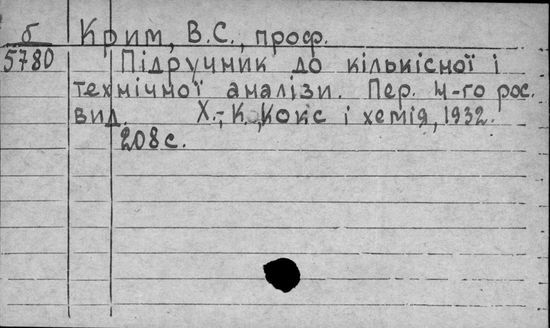 б Крим, В.С., проф.
5780 Підручник до кількісної і
технічної аналізи. Пер. 4-го рос.
вид. Х.-К., Кокс і хемія, 1932.
208с.